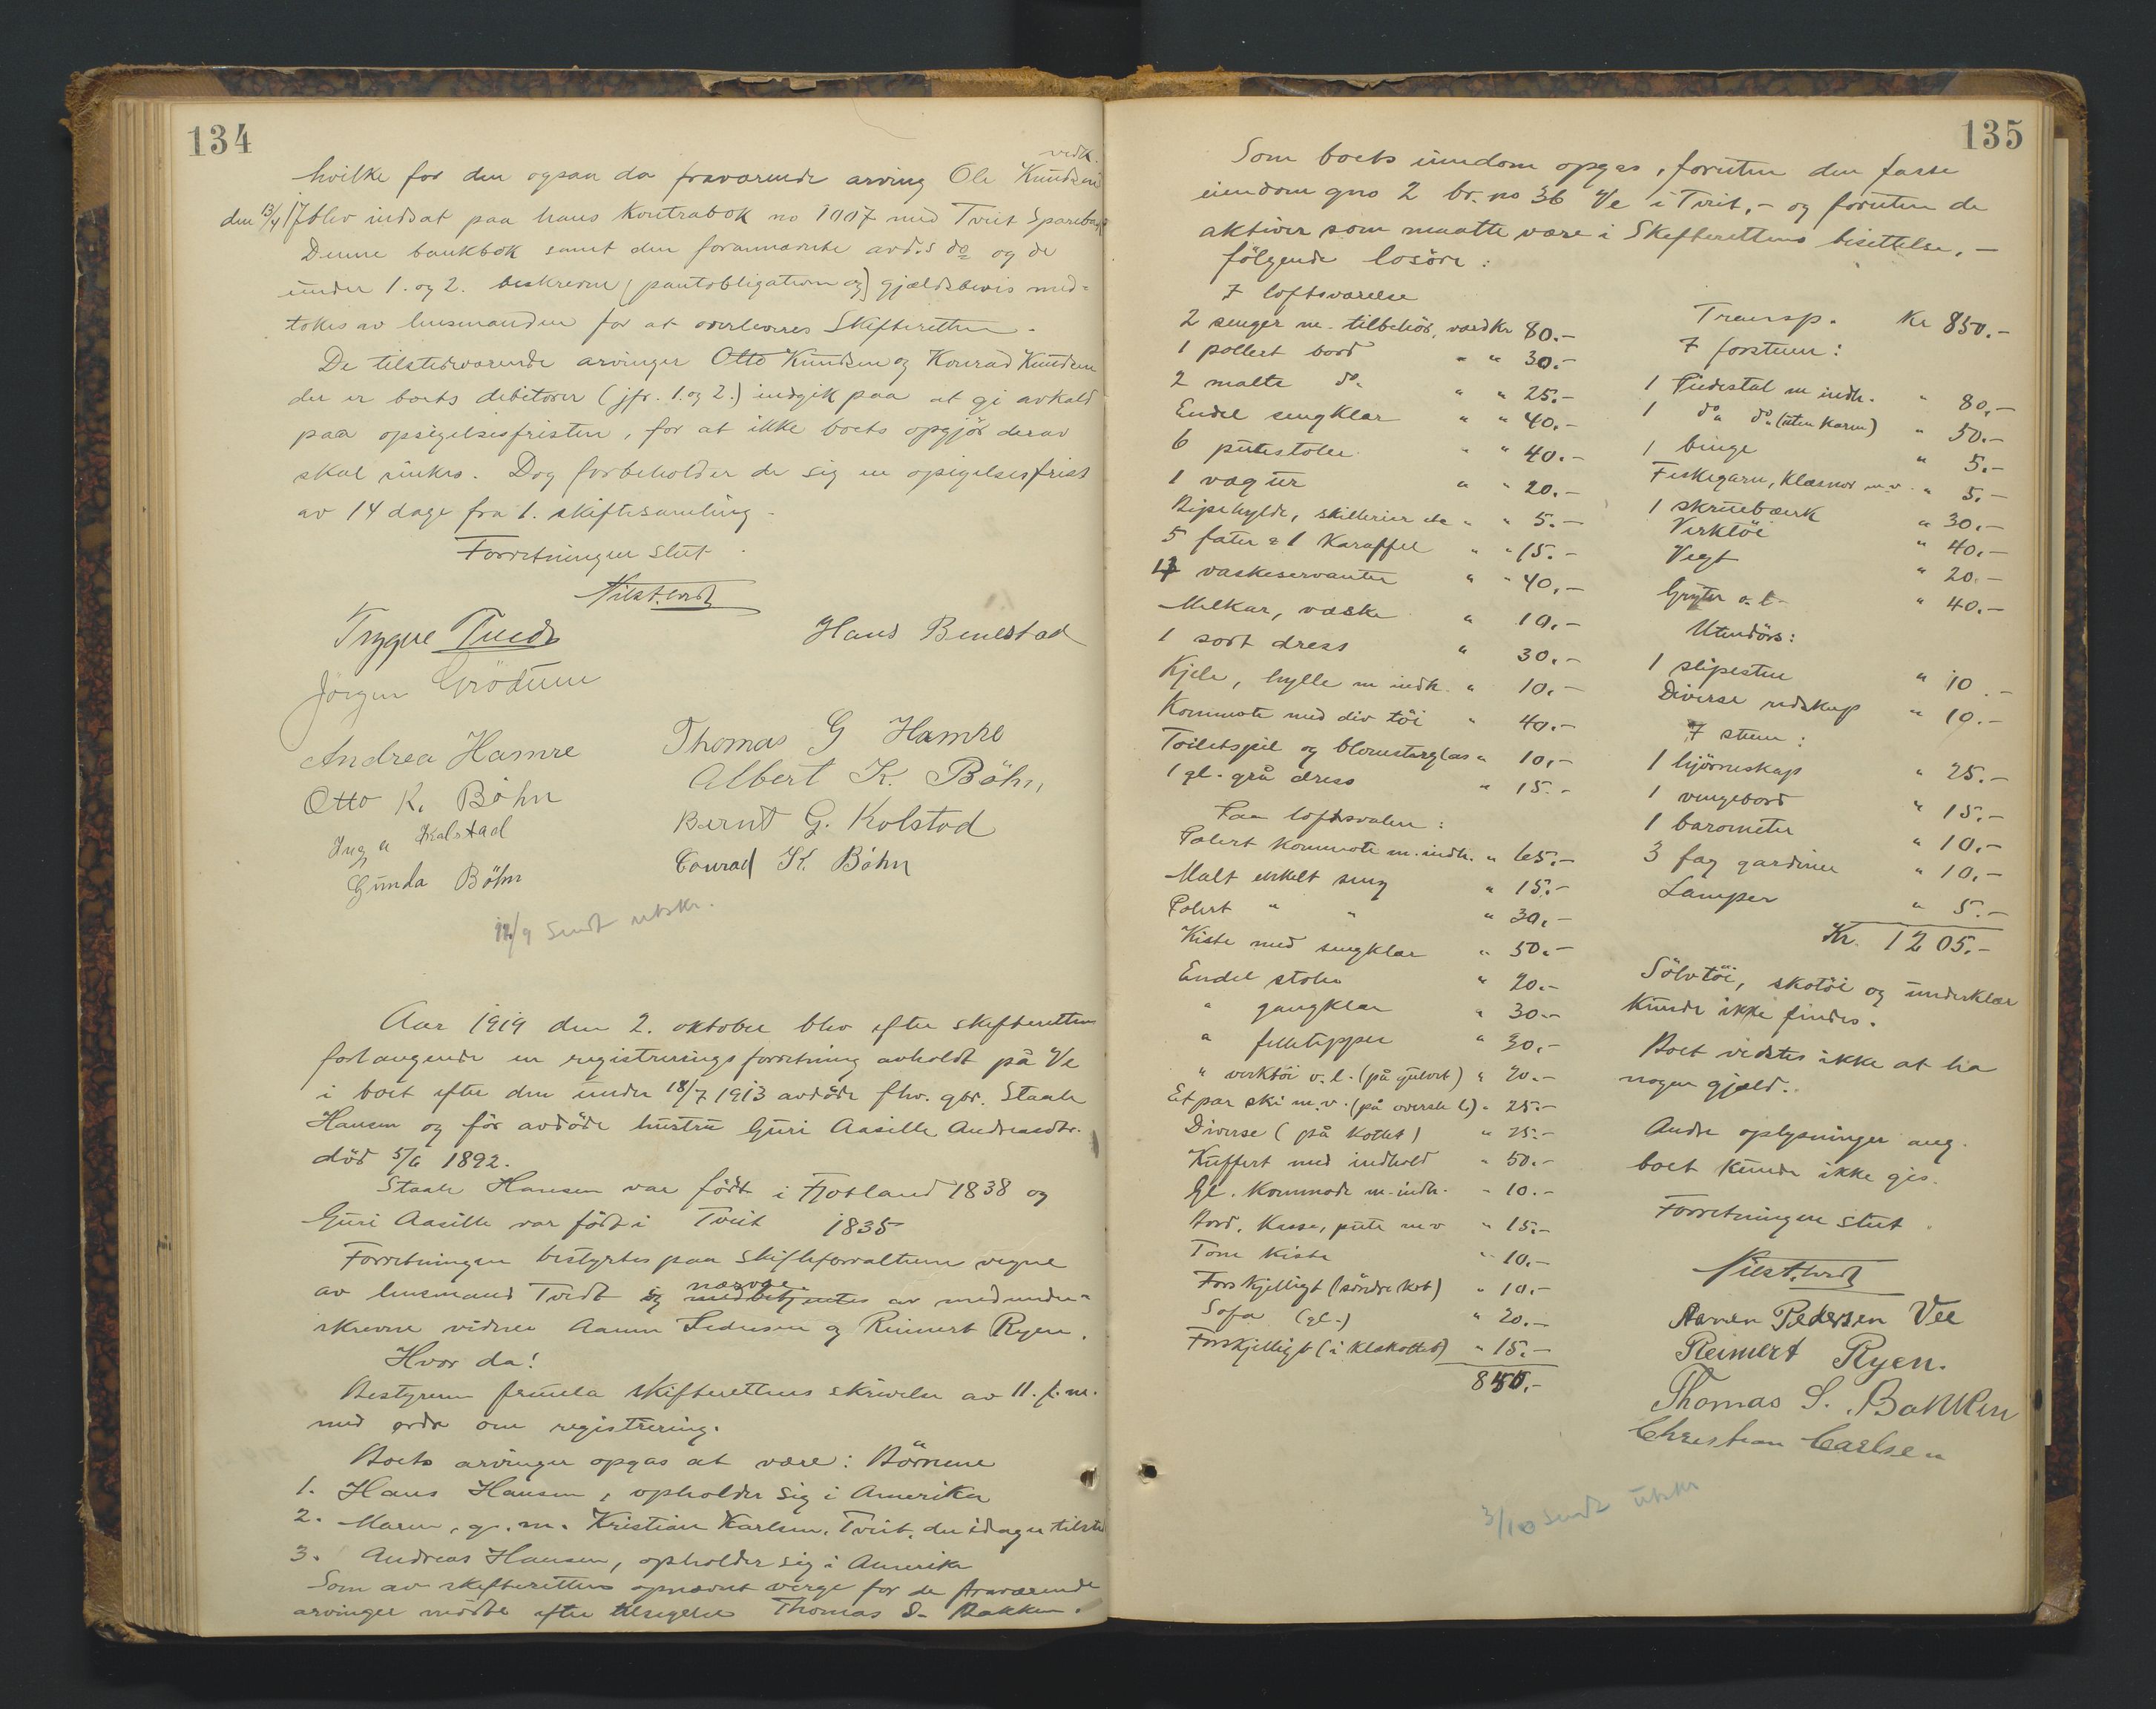 134
vedk.
hvilke for den ogsaa da fraværende arving Ole Knudsen
den 13/4 17 blev indsat paa hans Kontrabok no 1007 med Tveit Sparebank
Denne bankbok samt den forannævnte avd.s do og de
under 1. og 2. beskrevne (pantobligation og) gjældsbevis med-
tokes av lensmanden for at overleveres Skifteretten.
De tilstedeværende arvinger Otto Knudsen og Konrad Knudsen
der er boets debitorer (jfr. 1. og 2.) indgik paa at gi avkald
paa opsigelsesfristen, for at ikke boets opgjör derav
skal sinkes. Dog forbeholder de sig en opsigelsesfrist
av 14 dage fra 1. skiftesamling.
Forretningen slut.
Trygve Tveid
Hans Benestad
Jörgen Grödum
Andrea Hamre
Thomas G Hamre
Otto K. Böhn
Albert K. Böhn,
Inga Kolstad
Bernt G. Kolstad
Gunda Böhn
Conrad K. Böhn
12/9 Sendt utskr.
Aar 1919 den 2. oktober blev efter skifterettens
forlangende en registreringsforretning avholdt på Ve
i boet efter den under 18/7 1913 avdöde fhv. gbr. Staale
Hansen og för avdöde hustru Guri Aasille Andreasdtr.
död 5/6 1892.
Staale Hansen var födt i Fjotland 1838 og
Guri Aasille var födt i Tveit 1835
Forretningen bestyrtes paa skifteforvalterens vegne
av lensmand Tvedt og medbetjentes av medunder-
skrevne vidner Aanen Pedersen og Reinert Ryen.
Hvor da!
Bestyreren fremla skifterettens skrivelse av 11. f.m.
med ordre om registrering.
Boets arvinger opgas at være: Börnene
1. Hans Hansen, opholder sig i Amerika
2. Maren, g. m. Kristian Karlsen, Tveit, der idag er tilsted
3. Andreas Hansen, opholder sig i Amerika
Som av skifteretten opnævnt verge for de fraværende
arvinger mödte efter tilsigelse Thomas S. Bakken.
135
Som boets eiendom opgas, foruten den faste
eiendom gno 2 br. no 36 Ve i Tveit, - og foruten de
aktiver som maatte være i Skifterettens besittelse, -
følgende lösöre:
I loftsværelse
2 senger m. tilbehör, værd Kr 80.-
1 pollert bord " " 30.-
2 malte do. " " 25.-
Endel sengklær " " 40.-
6 putestoler " " 40.-
1 vægur " " 20.-
Pipehylde, skillerier etc " " 5.-
5 fater & 1 Karaffel " " 15.-
13 vaskeservanter " " 40.-
Melkar, væske " 10.-
1 sort dress " 30.-
Kjele, hylle m indh. " 10.-
Kommode med div töi " 40.-
Toiletspeil og blomsterglas " 10.-
1 gl. grå dress " 15.-
Paa loftsvalen:
Polert Kommode m. indh. " 65.-
Malt enkelt seng " 15.-
Polert " " " 30.-
Kiste med sengklær " 50.-
Endel stoler " 20.-
" gangklær " 30.-
" felletepper " 30.-
" verktöi o. l. (på gulvet) " 20.-
Et par ski m. v. (på överste l.) " 25.-
Diverse (på Kottet) " 25.-
Kuffert med indhold " 50.-
Gl. Kommode m. indh. " 10.-
Bord, Kasse, pute m v " 15.-
Tom Kiste " 10.-
Forskjelligt (söndre kot) " 10.-
Sofa (gl.) " 20.-
Forskjelligt (i kleskottet) " 15.-
850.-
Transp. Kr 850.-
I forstuen:
1 Piedestal m indh. " 80.-
1 do do (uten Karm) " 50.-
1 binge " 5.-
Fiskegarn, klæsnor m.v. " 5.-
1 skruebænk " 30.-
Verktöi " 40.-
Vegt " 20.-
Gryter o. l. " 40.-
Utendörs:
1 slipesten " 10.-
Diverse redskap " 10.-
I stuen:
1 hjörneskap " 25.-
1 vengebord " 15.-
1 barometer " 10.-
3 fag gardiner " 10.-
Lamper " 5.-
Kr. 1205.-
Sölvtöi, skotöi og underklær
Kunde ikke findes.
Boet vidstes ikke at ha
nogen gjæld.
Andre oplysninger ang.
boet kunde ikke gis.
Forretningen slut.
Aanen Pedersen Vee
Reinert Ryen.
Thomas S. Bakken
Christian Carlsen
3/10 sendt utskr